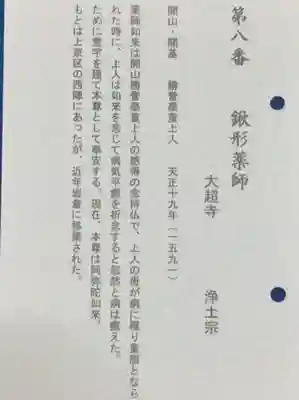 第八番　鍬形薬師
大超寺　浄土宗
開山・開基　勝誉褒童上人　天正十九年（一五九一）
薬師如来は開山勝誉褒童上人の感得の念持仏で、上人の母が病に罹り重態となら
れた時に、上人は如来を念じて病気平癒を祈念すると忽然と病は癒えた。
ために堂宇を建て本尊として奉安する。現在、本尊は阿弥陀如来。
もとは上京区の西陣にあったが、近年岩倉に移築された。